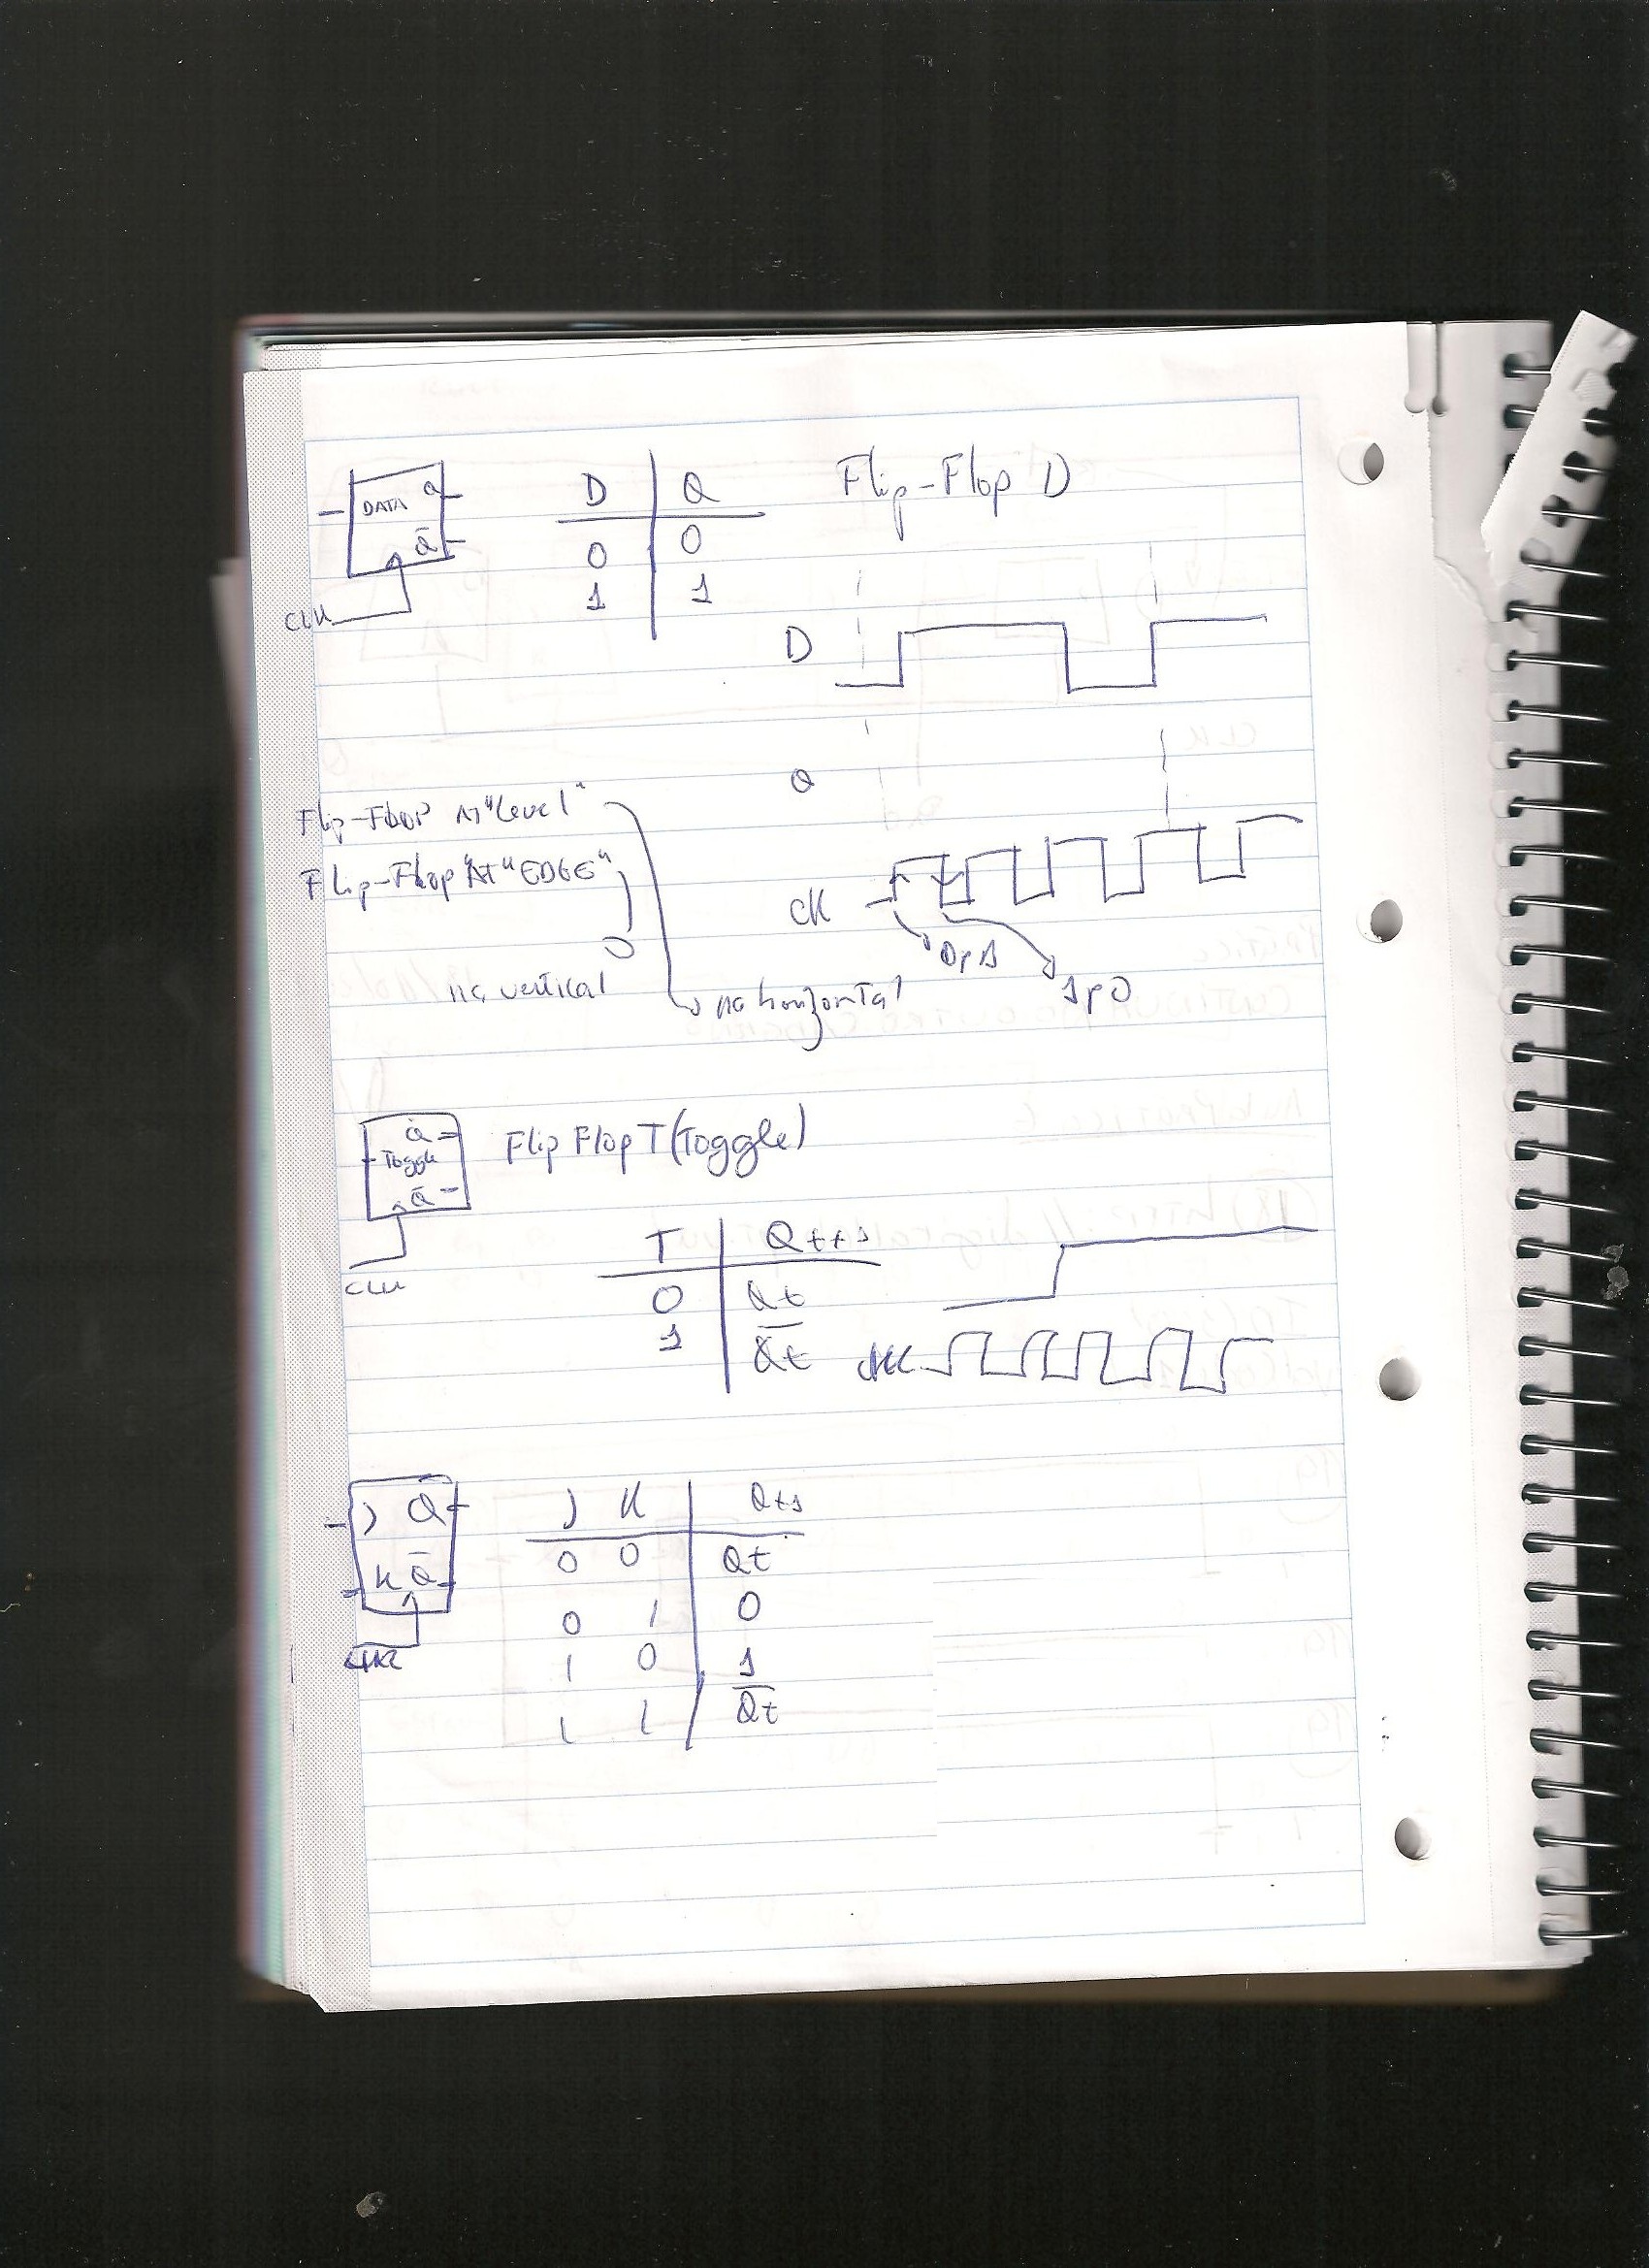 DATA Q
Q̄
CLK
D Q
0 0
1 1
Flip-Flop D
D
Q
Flip-Flop AT "Level"
Flip-Flop "AT "EDGE"
na vertical
na horizontal
CK
0 p 1
1 p 0
Q
Toggle
Q̄
CLK
Flip Flop T (Toggle)
T Qt+1
0 Qt
1 Q̄t
J Q
K Q̄
J K Qt+1
0 0 Qt
0 1 0
1 0 1
1 1 Q̄t